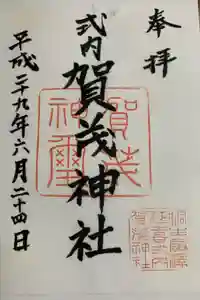 奉拝
式内
賀茂神社
平成二十九年六月二十四日
賀茂
神璽